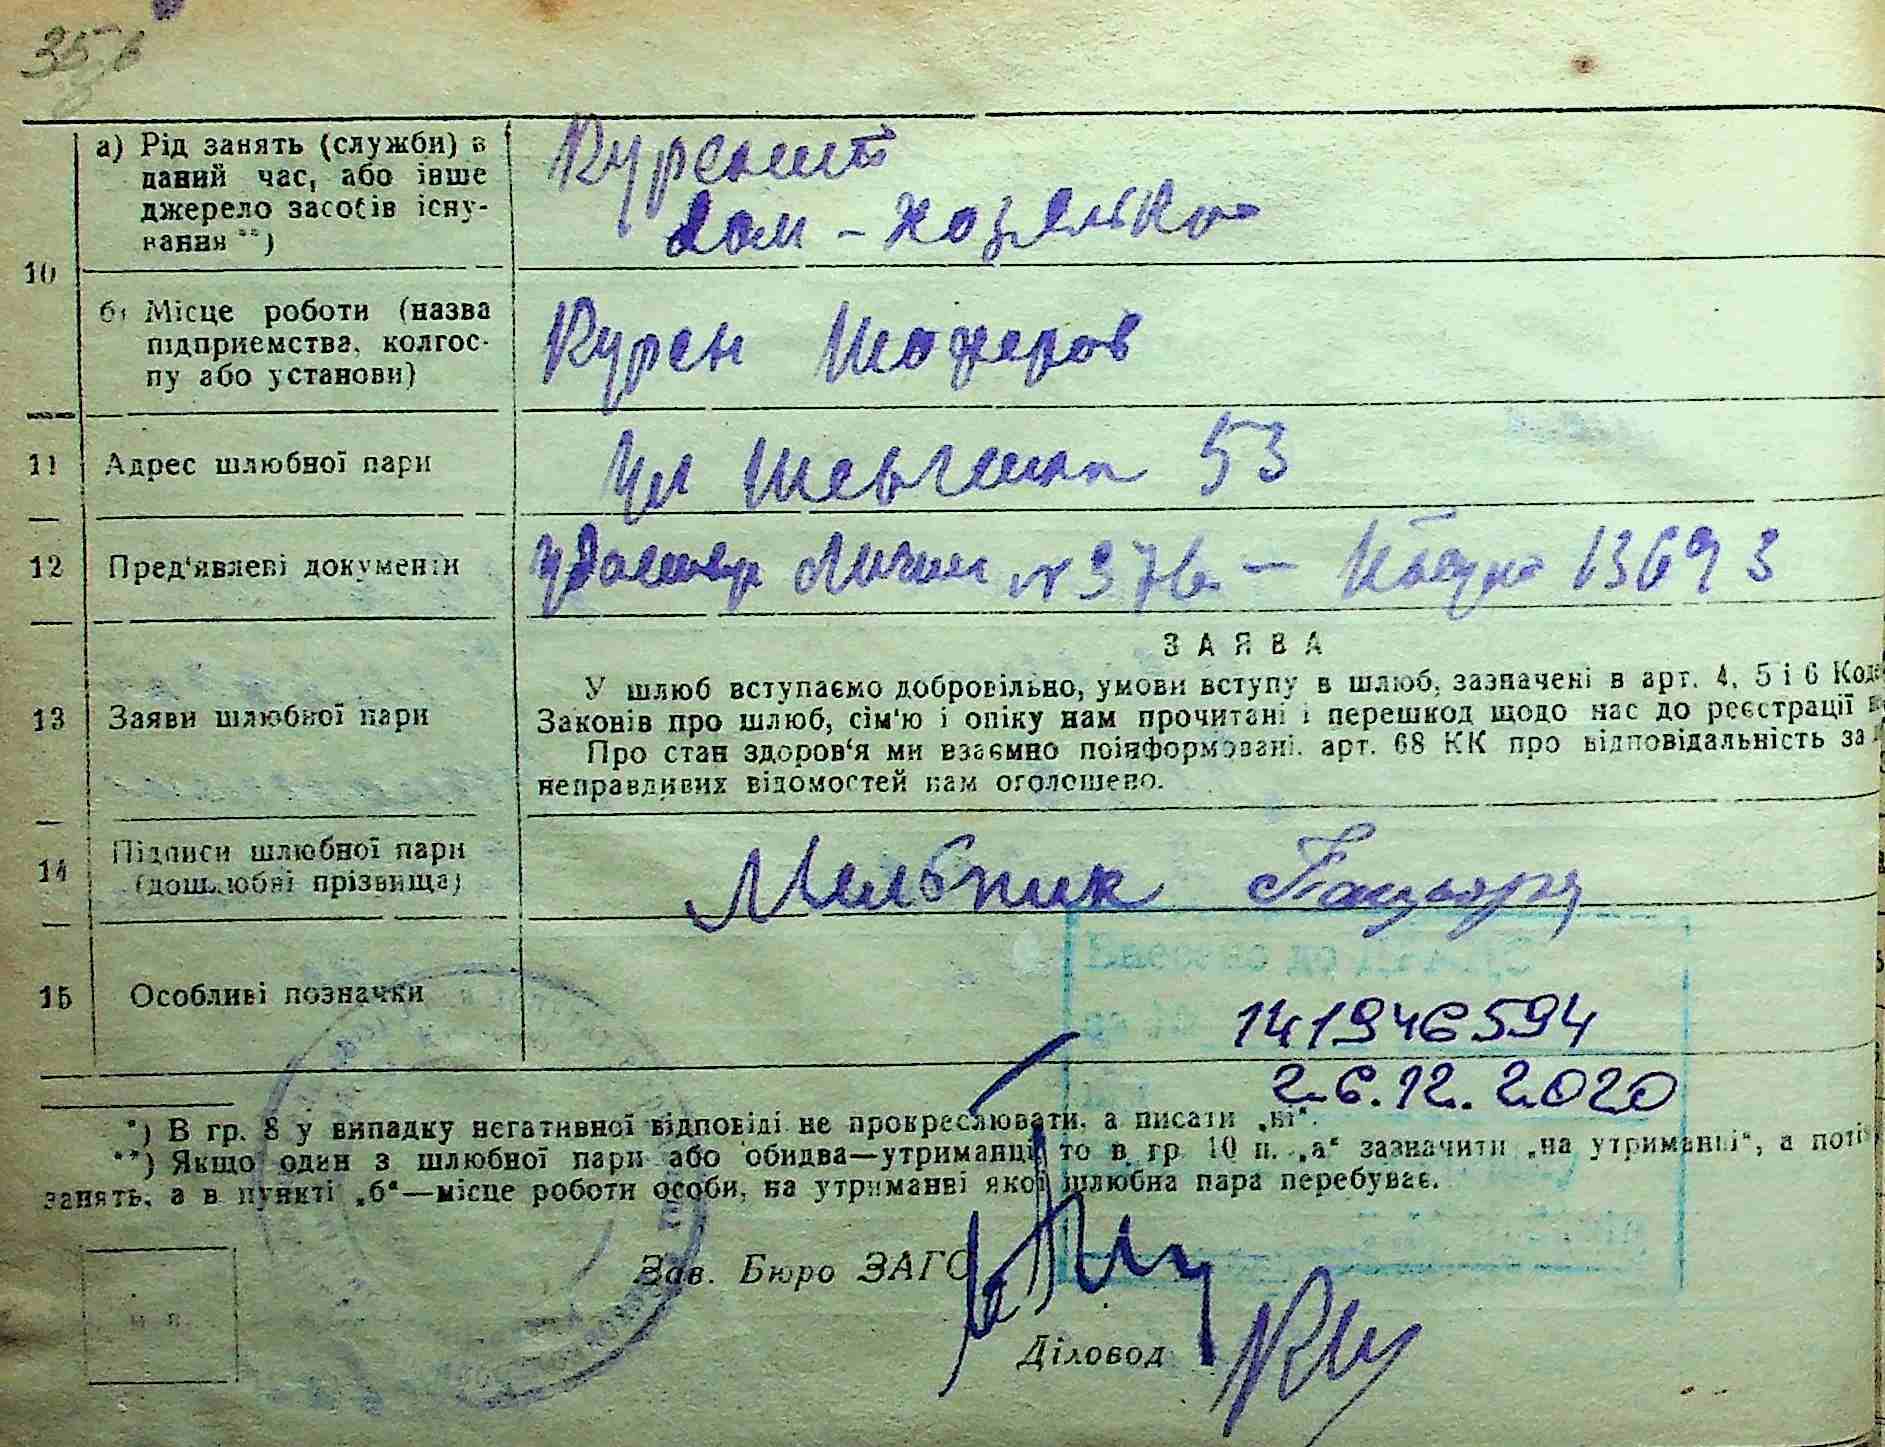 35
а) Рід занять (служби) в
даний час, або інше
джерело засобів існу-
вання **)
Курсант
Дом - хозяйка
10
б) Місце роботи (назва
підприємства, колгос-
пу або установи)
Шоферов
11 Адрес шлюбної пари
ул Шевченка 53
12 Пред‘явлені документи
удостовер Личн № 376 — 13693
13 Заяви шлюбної пари
ЗАЯВА
У шлюб вступаємо добровільно, умови вступу в шлюб, зазначені в арт. 4, 5 і 6 Код
Законів про шлюб, сім‘ю і опіку нам прочитані і перешкод щодо нас до реєстрації
Про стан здоров‘я ми взаємно поінформовані. арт. 68 КК про відповідальність за
неправдивих відомостей нам оголошено.
14 Підписи шлюбної пари
(дошлюбні прізвища)
Мельник
15 Особливі позначки
Внесено до
141946594
26.12.2020
*) В гр. 8 у випадку негативної відповіді не прокреслювати, а писати „ні“.
**) Якщо один з шлюбної пари або обидва—утриманці то в гр 10 п. „а“ зазначити „на утриманні“, а поті
занять, а в пункті „б“—місце роботи особи, на утриманні якої шлюбна пара перебуває.
Зав. Бюро ЗАГС
Діловод